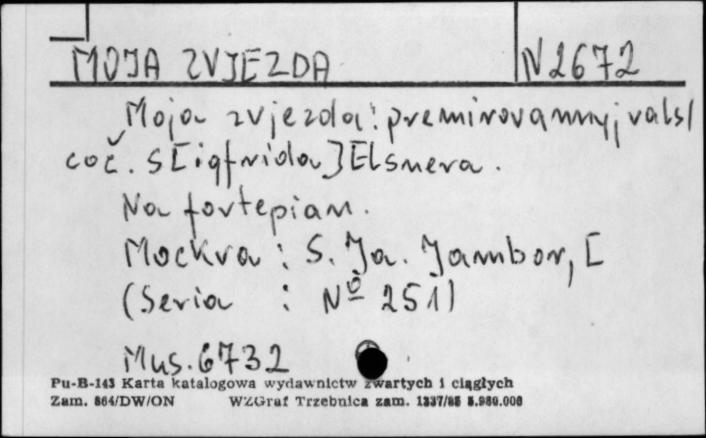 MOJA ZVJEZDA N 2672
Moja zvjezda: premirovannyj vals/
coč. S[igfrida] Elsnera.
Na fortepian.
Mockva : S. Ja. Jambor, [
(Seria : Nº 251)
Mus. 6732
Pu-B-143 Karta katalogowa wydawnictw zwartych i ciągłych
Zam. 864/DW/ON WZGraf Trzebnica zam. 1337/85 5.980.000